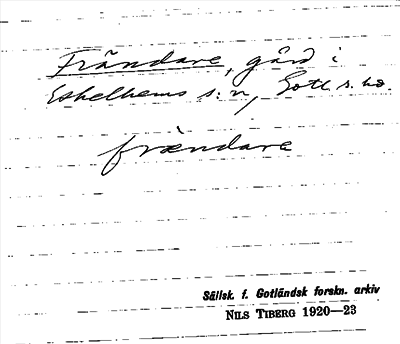 Frändare, gård i
Eskelhems s:n, Gotl. s. hd.
frændarę
Sällsk. f. Gotländsk forskn. arkiv
NILS TIBERG 1920—23